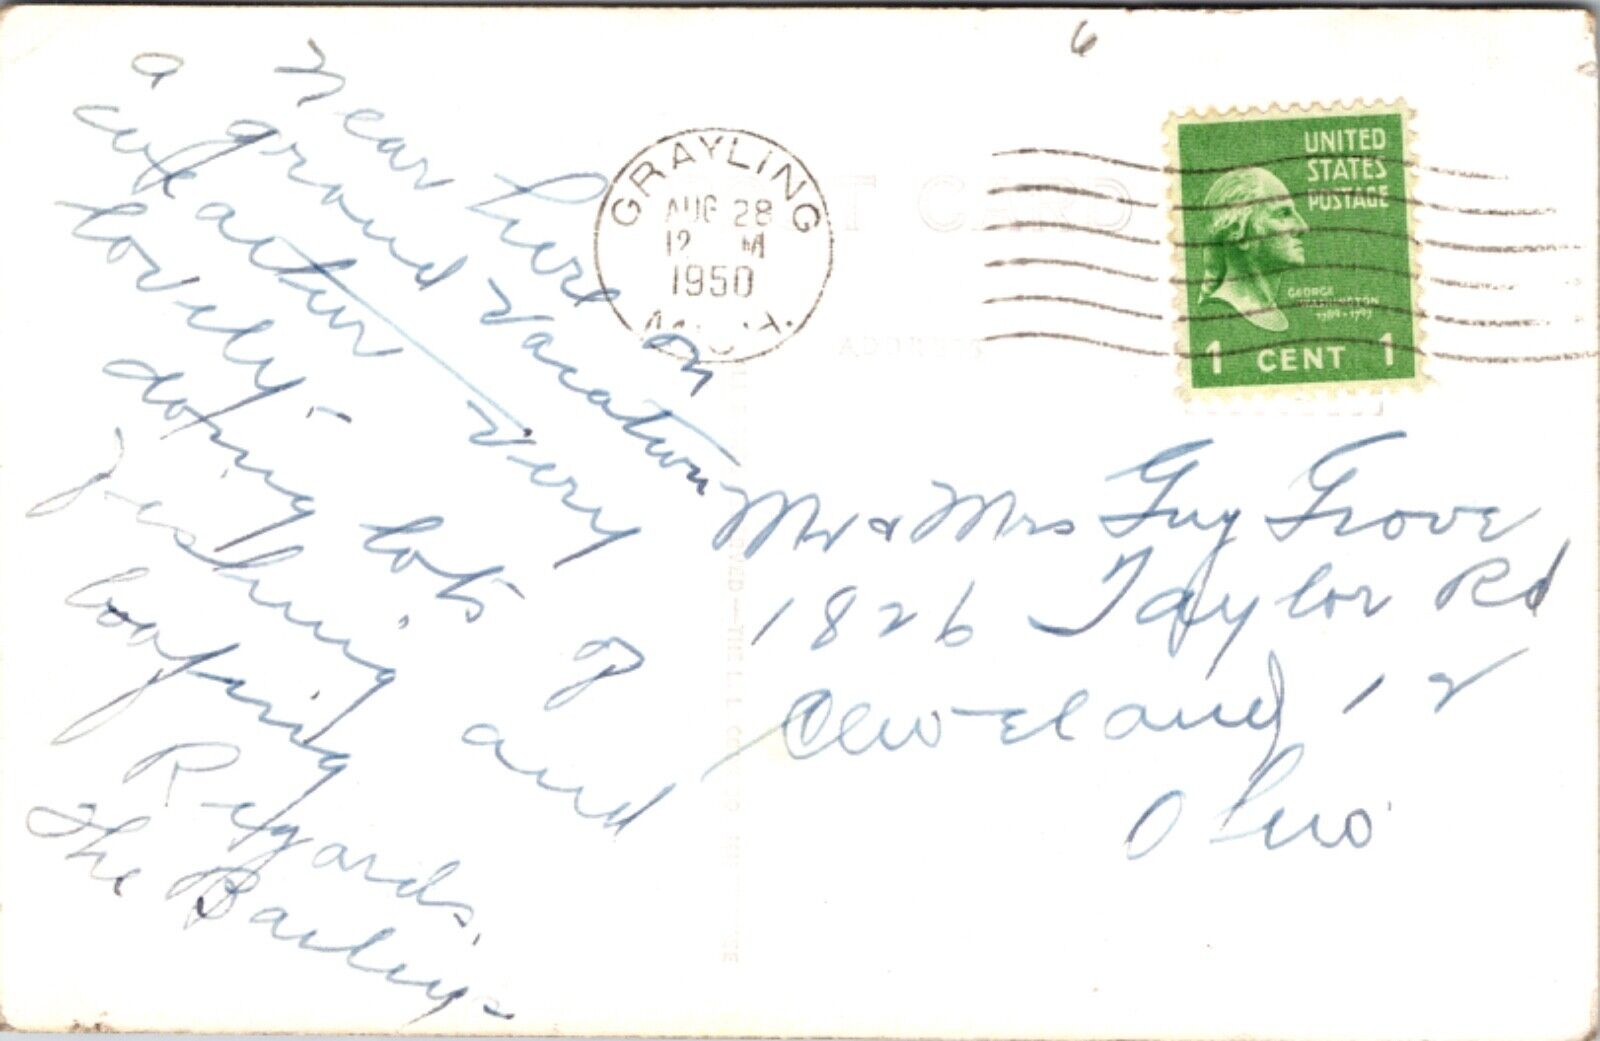 6
Near here on
a grand vacation
cut after very
lovely -
doing lots of
fishing and
loafing
Regards,
The Baileys
GRAYLING
AUG 28
12 M
1950
POST CARD
ADDRESS
UNITED
STATES
POSTAGE
GEORGE
WASHINGTON
1789-1797
1 CENT 1
Mr & Mrs Guy Grove
1826 Taylor Rd
Cleveland 12
Ohio